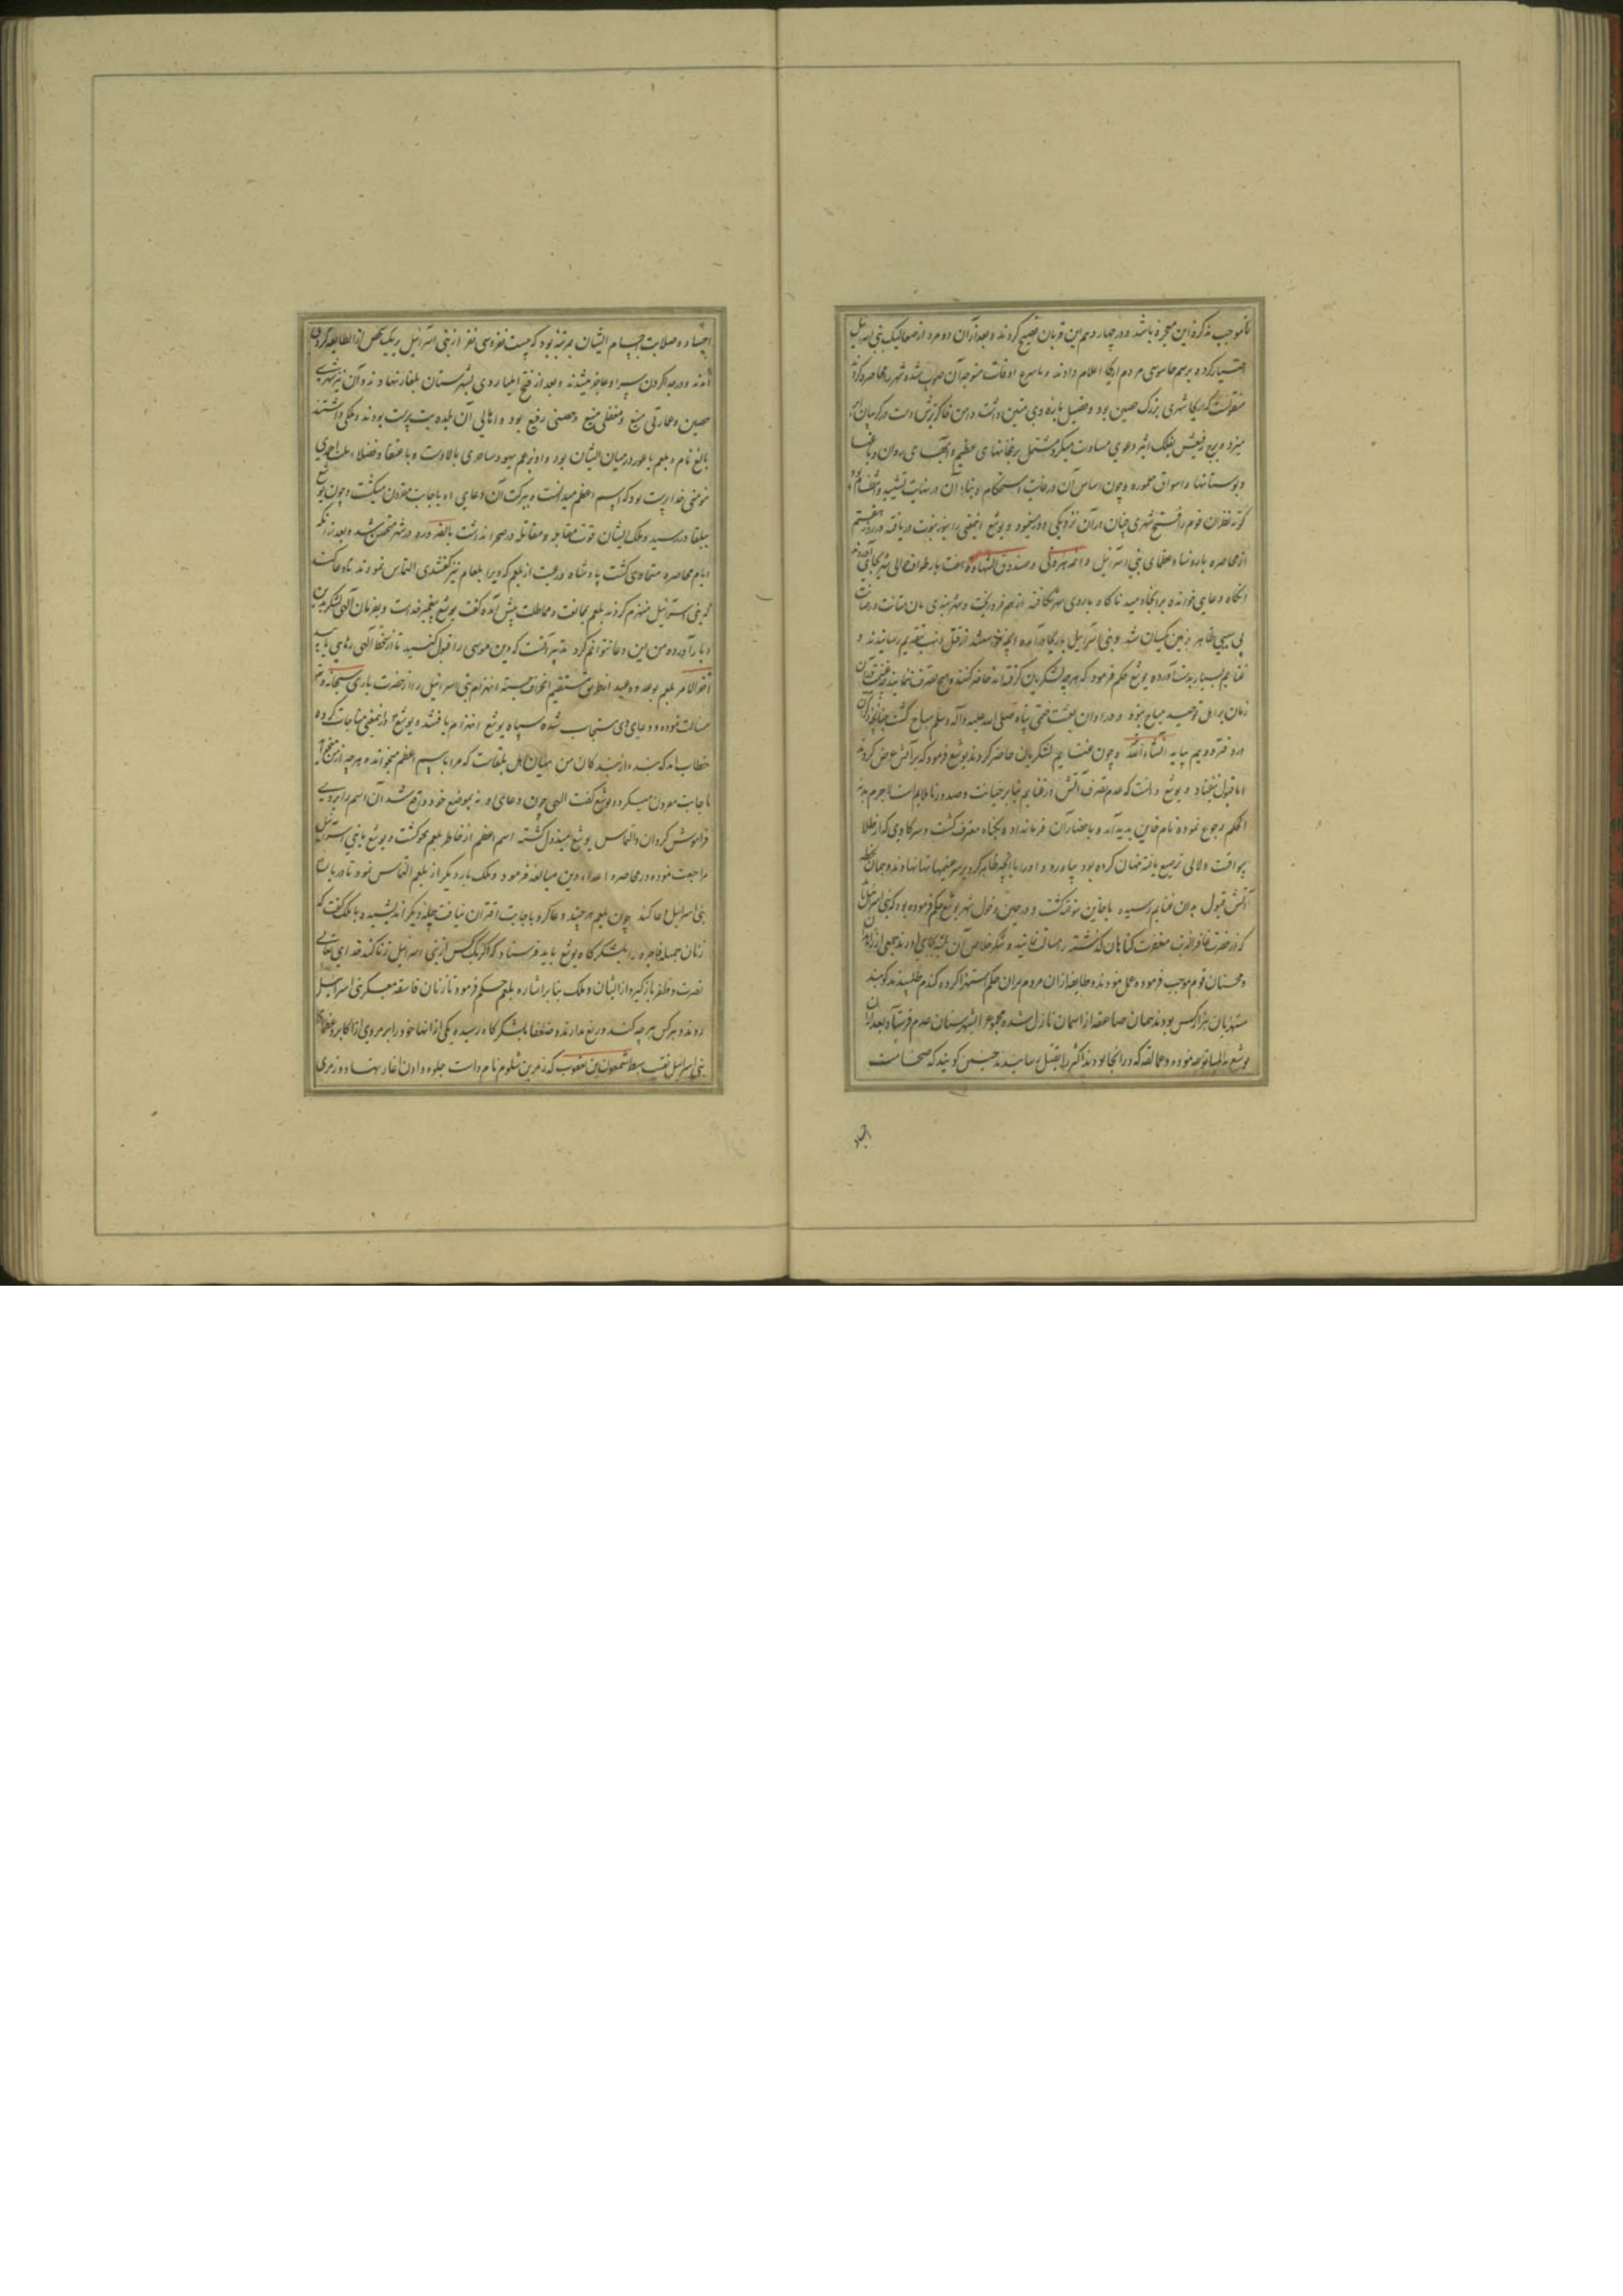 تا موجب تذکره این معجزه باشد و در چهاردهم این قربان فصیح کردند و بعد از آن دو مرد از صعالیک بنی اسرائیل
اختیار کرده برسم جاسوسی مردم اریحا اعلام دادند و باسرع اوقات متوجه آن صوب شده شهر را محاصره کردند
منقولست که اریحا شهری بزرک حصین بود و فصیل باره وی متین داشت دامن خاکریزش دست در کریبان
میزد و برج رفیعش بفلک اثیر دعوی مساوات میکرد مشتمل بر خانهای عظیم و آبهای روان و باغها
و بوستانها و اسواق معموره و چون اساس آن در غایت استحکام و بناء آن در نهایت تشیید و انتظام بود
کوته نظران قوم را فتح شهری چنان در آن نزدیکی دور مینمود و یوشع اینمعنی را بنور نبوت دریافته در روز هفتم
از محاصره با رؤساء و عظمای بنی اسرائیل و ائمه هرونی و صندوق الشهاده هفت بار طواف حوالی شهر بجای آوردند
انکاه دعایی خوانده بر انجا دمید ناکاه باروی شهر شکافته از هم فرو ریخت و شهربندی بان متانت و رصانت
بی سببی ظاهر بزمین یکسان شد و بنی اسرائیل باریحا در آمده آنچه خواستند از قتل و نهب بتقدیم رسانیدند و
غنایم بسیار بدست آورده یوشع حکم فرمود که هرچه لشکریان کرفته اند حاضر کنند و هیچ تصرف ننمایند چه غنیمت در آن
زمان بر اهل توحید مباح نبود و در اوان بعثت ختمی پناه صلی الله علیه و آله و سلم مباح کشت چنانچه ذکر آن
در دفتر دویم بیاید انشاء الله و چون غنایم لشکریان حاضر کردند یوشع فرمود که بر آتش عرض کردند
اما قبول نیفتاد و یوشع دانست که عدم تصرف آتش در غنایم بنابر خیانت و صدور ناملایم است لاجرم بقرعه
احکم رجوع نموده نام خاین بدید آمد و باحضار آن فرمان داد و بکناه معترف کشت و سر کاوی که از طلا
بیواقیت و لالی ترصیع یافته پنهان کرده بود بیاورد و او را با آنچه ظاهر کرد بر سر غنیمتها نهادند و همان لحظه
آتش قبول بدان غنایم رسیده با خاین سوخته کشت و در حین دخول شهر یوشع حکم فرموده بود که بنی اسرائیل
که از حضرت غافر الذنب مغفرت کناهان کذشته مسالت نمایند و شکر خلاص آن بلیه بجای آورند جمعی از زاهدان
و محسنان قوم موجب فرموده عمل نمودند و طایفه از ان مردم بران حکم استهزا کرده کندم طلبیدند کویند
مستهزیان هزار کس بودند همان صاعقه از اسمان نازل شده مجموع را بشهرستان عدم فرستاد بعد از آن
یوشع بایلیا توجه نموده و عمالقه که در انجا بودند اکثر را بقتل رسانیدند چنین کویند که ضخامت
اجساد
اجساد و صلابت اجسام ایشان بمرتبه بود که بیست نفر و سی نفر از بنی اسرائیل بر یک شخص از ان طایفه کرد می
آمدند و در جدا کردن سر او عاجز میشدند و بعد از فتح ایلیا روی بشهرستان بلقا نهادند و آن نیز شهری
حصین و عمارتی منیع و معقلی منیع و حصنی رفیع بود و اهالی آن بلده بت پرست بودند و ملکی داشتند
بالغ نام و بلعم باعور در میان ایشان بود و او بزعم یهود ساحری بالادست و باعتقاد فضلاء ملت احمدی
مؤمنی خداپرست بود که اسم اعظم میدانست و ببرکت آن دعای او باجابت مقرون میکشت و چون یوشع
ببلقا در رسید و ملک ایشان قوت مقابله و مقاتله در صحرا نداشت بالضروره در شهر متحصن شد و بعد از انکه
ایام محاصره متمادی کشت پادشاه و رعیت از بلعم که ویرا بلعام نیز کفتندی التماس نمودند تا دعا کند
که بنی اسرائیل منهزم کردند بلعم مخالفت و مماطلت پیش آمده کفت یوشع پیغمبر خداست و بفرمان آلهی لشکر بدین
دیار آورده من این دعا نتوانم کرد تدبیر آنست که دین موسی را قبول کنید تا از سخط آلهی رهایی یابید
آخر الامر بلعم بوعد و وعید از طریق مستقیم انحراف جسته انهزام بنی اسرائیل را از حضرت باری سبحانه و تعالی
مسالت نموده و دعای وی مستجاب شده سپاه یوشع انهزام یافتند و یوشع از اینمعنی مناجات کرده
خطاب آمد که بنده از بندکان من میان اهل بلقاست که مرا باسم اعظم میخواند و هرچه از من میخواهد
باجابت مقرون میکردد یوشع کفت الهی چون دعای او نه بموضع خود واقع شد آن اسم را بر وی
فراموش کردان و التماس یوشع مبذول کشته اسم اعظم از خاطر بلعم محو کشت و یوشع با بنی اسرائیل
مراجعت نموده در محاصره اعداء دین مبالغه فرمود و ملک بار دیکر از بلعم التماس نمود تا در باب
بنی اسرائیل دعا کند چون بلعم هر چند دعا کرد باجابت اقتران نیافت حیله دیکر اندیشیده با ملک کفت که
زنان جمیله فاجره را بلشکرکاه یوشع باید فرستاد که اکر یک کس از بنی اسرائیل زنا کند خدای تعالی
نصرت و ظفر باز کیرد از ایشان و ملک بنابر اشاره بلعم حکم فرمود تا زنان فاسقه بمعسکر بنی اسرائیل
روند و هر کس هر چه کند دریغ ندارند و ضعفا بلشکرکاه رسیده یکی از انها خود را بر مردی از اکابر و عظمای
بنی اسرائیل نقیب سبط شمعون بن یعقوب که زمری بن شلوم نام داشت جلوه دادن اغاز نهاد و زمری